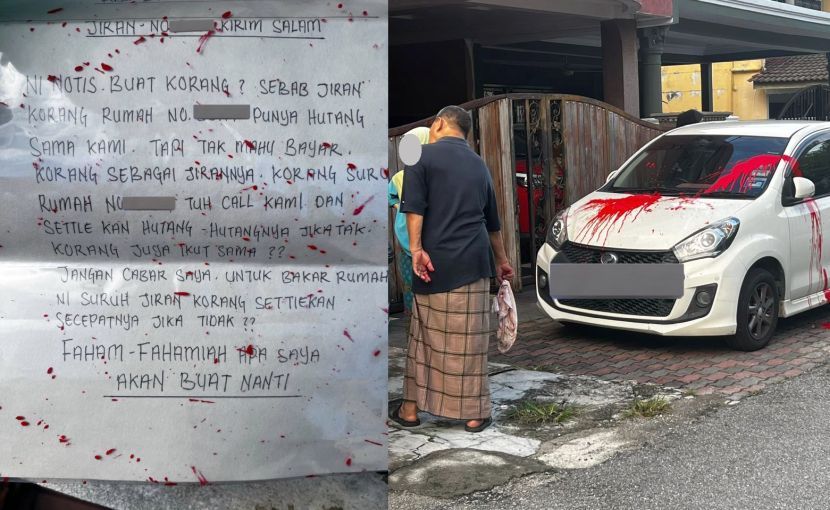 JIRAN-NO KIRIM SALAM
NI NOTIS. BUAT KORANG? SEBAB JIRAN
KORANG RUMAH NO. PUNYA HUTANG
SAMA KAMI. TAPI TAK MAHU BAYAR.
KORANG SEBAGAI JIRANNYA. KORANG SURU
RUMAH NO TUH CALL KAMI DAN
SETTLE KAN HUTANG-HUTANGNYA JIKA TAK.
KORANG JUGA IKUT SAMA ??
JANGAN CABAR SAYA. UNTUK BAKAR RUMAH
NI SURUH JIRAN KORANG SETTIEKAN
SECEPATNYA JIKA TIDAK ??
FAHAM-FAHAMIAH APA SAYA
AKAN BUAT NANTI